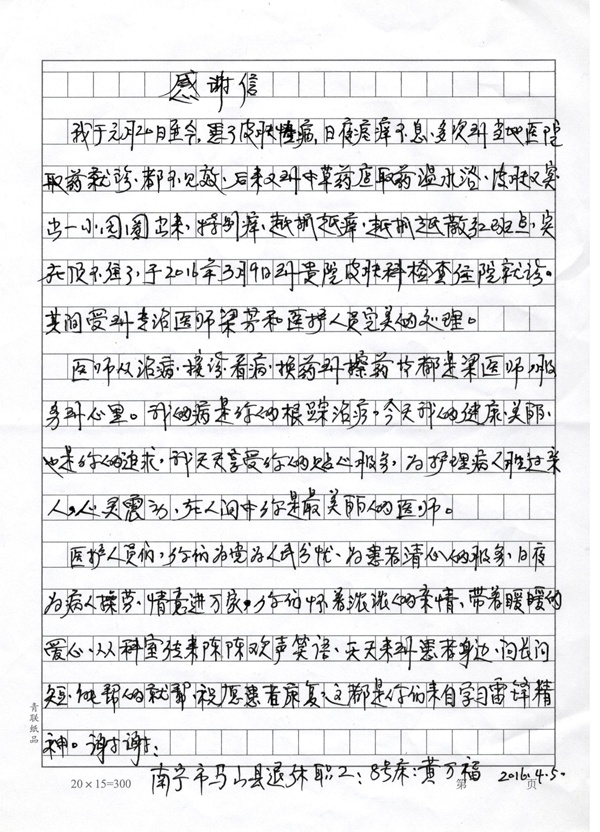 感谢信
我于元月20日至今，患了皮肤慢病，日夜瘙痒不息，多次到当地医院
取药就诊，都不见效，后来又到中草药店取药温水浴，皮肤又突
出一小团圈出来，特别痒，越抓越痒，越抓越散红斑点，实
在顶不住了，于2016年3月9日到贵院皮肤科检查住院就诊。
其间受到专治医师梁芳和医护人员完美的处理。
医师从治病，接诊看病，换药到擦药片都是梁医师服
务到心里。我的病是你的根踪治疗，今天我的健康，美丽，
也是你的追求，我天天享受你的贴心服务，为护理病人胜过亲
人，心灵震动，在人间中你是最美丽的医师。
医护人员们，你们为党为人民分忧，为患者清心的服务，日夜
为病人操劳，情意进万家，你们怀着浓浓的亲情，带着暖暖的
爱心，从科室传来阵阵欢声笑语，天天来到患者身边，问长问
短，能帮的就帮，祝愿患者康复，这都是你们来自学习雷锋精
神。谢谢：
南宁市马山县退休职工：8号床：黄万福 2016.4.5.
青联纸品
20×15=300
第 页